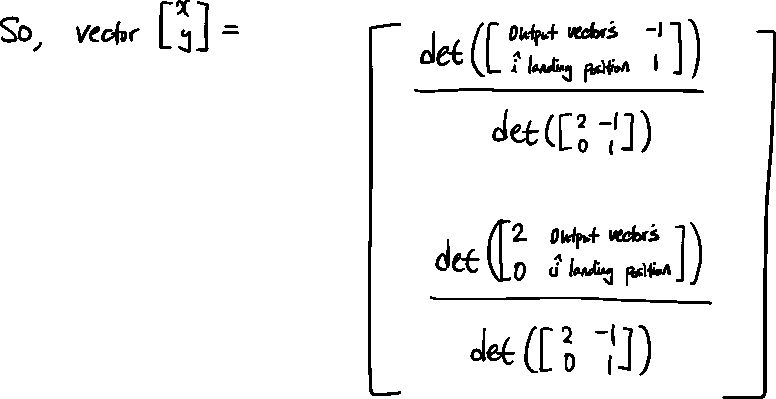 So, vector [x y] =
det([Output vector's -1
î landing position 1])
det([2 -1
0 1])
det([2 Output vector's
0 ĵ landing position])
det([2 -1
0 1])